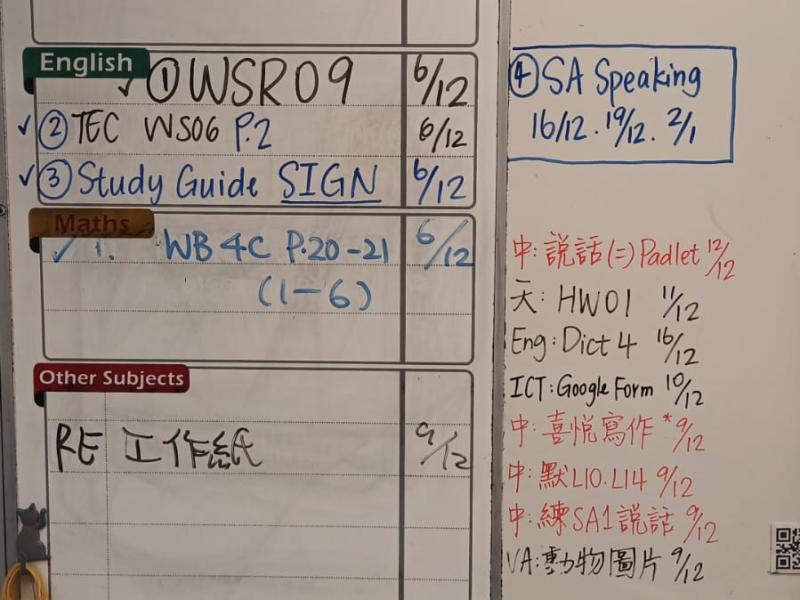 English
✓ ① WSR09 6/12
✓ ② TEC WS06 P.2 6/12
✓ ③ Study Guide SIGN 6/12
Maths
✓ 1. WB 4C P.20-21 6/12
(1-6)
Other Subjects
RE 工作紙 9/12
④ SA Speaking
16/12 . 19/12 . 2/1
中: 説話(二) Padlet 12/12
天: HW01 11/12
Eng: Dict 4 16/12
ICT: Google Form 10/12
中: 喜悦寫作 * 9/12
中: 默L10. L14 9/12
中: 練SA1説話 9/12
VA: 動物圖片 9/12